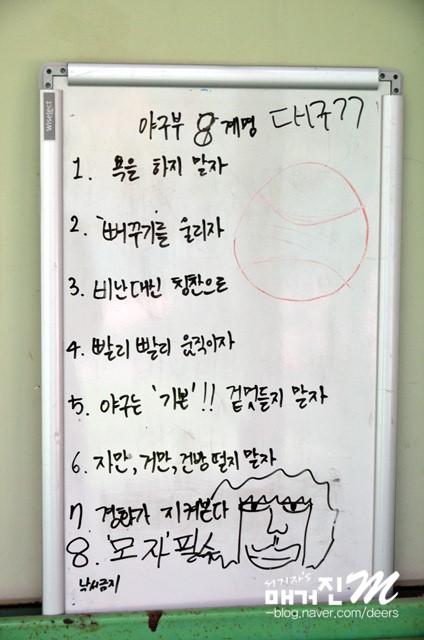 Wiselect
야구부 8계명 대구??
1. 욕을 하지 말자
2. '뻐꾸기를 울리자
3. 비난대신 칭찬으로
4. 빨리 빨리 움직이자
5. 야구는 '기본'!! 겉멋들지 말자
6. 자만, 거만, 건방 떨지 말자
7 경환가 지켜본다
8. '모자' 필수
낙서금지
서기자's
매거진M
-blog.naver.com/deers